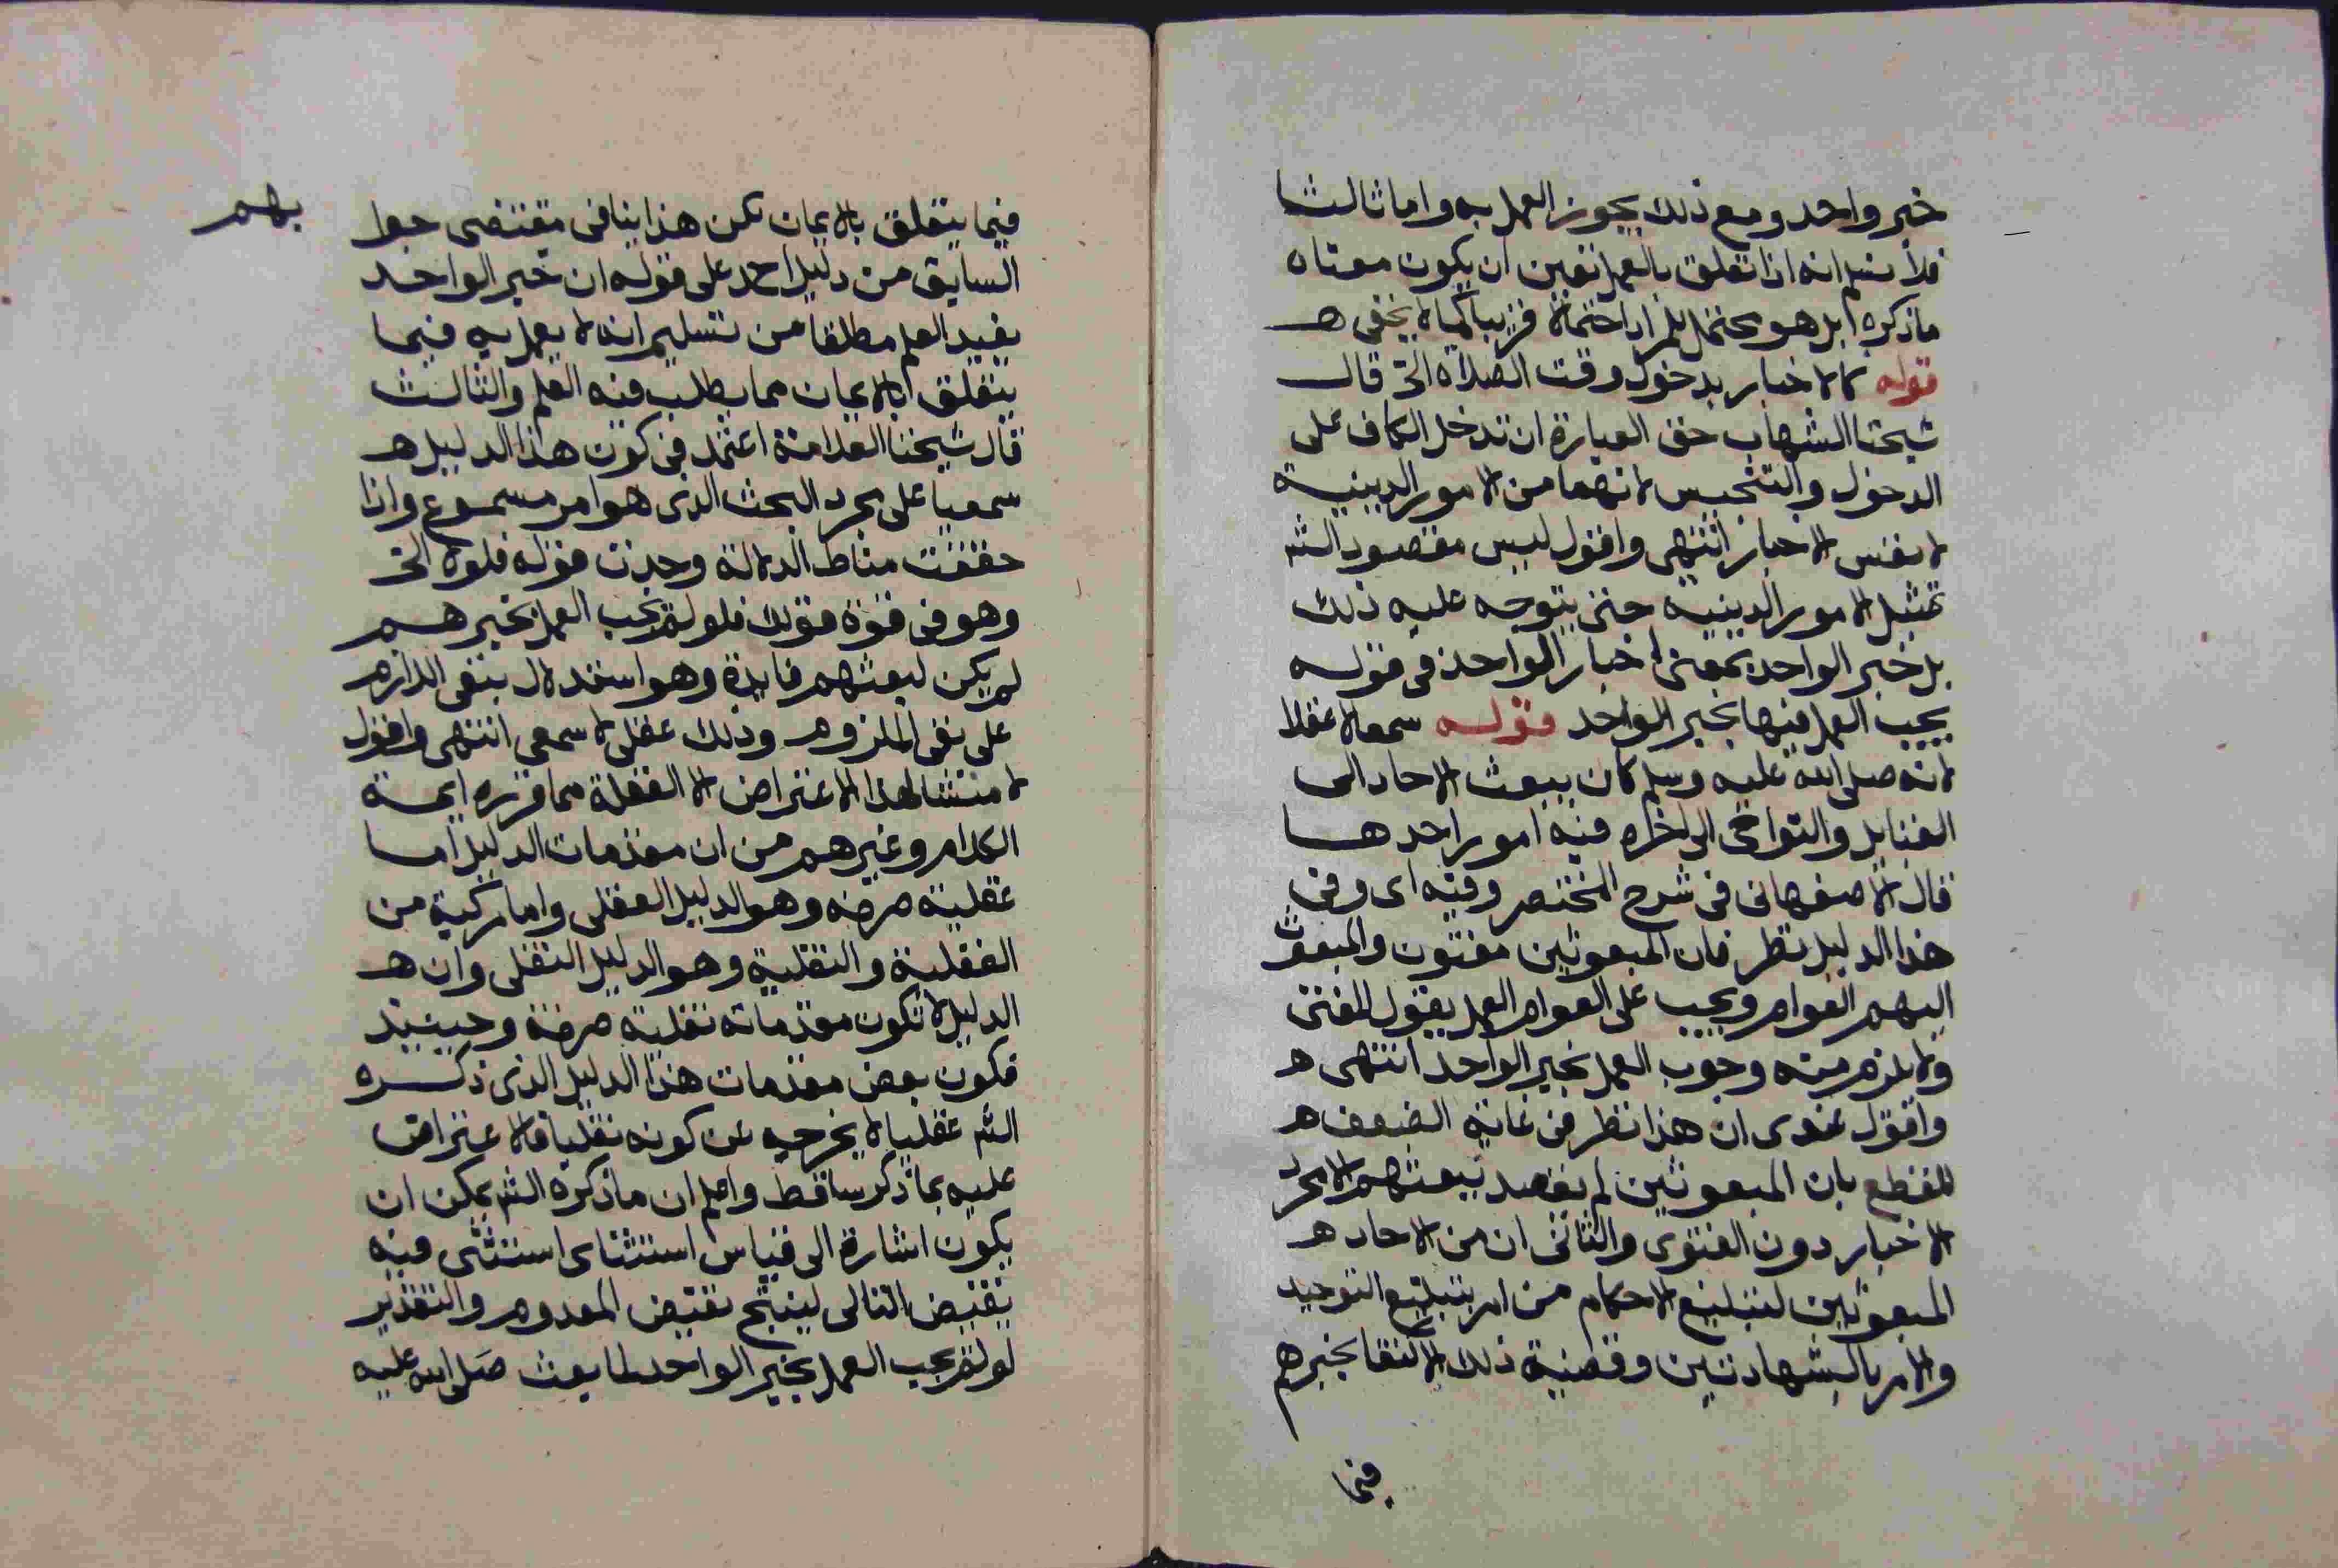 خبر واحد ومع ذلك يجوز العمل به واما ثالثا
فلا نسلم انه اذا تعلق بالعمل تعين ان يكون معناه
ما ذكره بل هو محتمل للمراد احتمالا قريبا كما لا يخفى هـ
قوله كالاخبار بدخول وقت الصلاة الخ قال
شيخنا الشهاب حق العبارة ان تدخل الكاف على
الدخول والتنجيس لانهما من الامور الدينية
لا نفس الاخبار انتهى واقول ليس مقصود الش
تمثيل الامور الدينية حتى يتوجه عليه ذلك
بل خبر الواحد بمعنى اخبار الواحد في قوله
يجب العمل فيها بخبر الواحد قوله سمعا لا عقلا
لانه صلى الله عليه وسلم كان يبعث الاحاد الى
القبايل والنواحى الى اخره فيه امور احدها
قال الاصفهانى فى شرح المختصر وفيه اى وفى
هذا الدليل نظر فان المبعوثين مفتون والمبعوث
اليهم العوام ويجب على العوام العمل بقول المفتى
ولا يلزم منه وجوب العمل بخبر الواحد انتهى هـ
واقول عندى ان هذا نظر فى غاية الضعف هـ
للقطع بان المبعوثين لم يقصد ببعثهم الا مجرد
الاخبار دون الفتوى والثانى ان من الاحاد هـ
المبعوثين لتبليغ الاحكام من امر بتبليغ التوحيد
والامر بالشهادتين وقضية ذلك الاكتفا بخبرهم
فيما
فيما يتعلق بالايمان لكن هذا ينافى مقتضى جوا بهم
السابق من دليل احمد على قوله ان خبر الواحد
يفيد العلم مطلقا من تسليم انه لا يعمل به فيما
يتعلق بالايمان مما يطلب فيه العلم والثالث
قال شيخنا العلامة اعتمد فى كون هذا الدليل هـ
سمعيا على مجرد البحث الذى هو امر مسموع واذا
حققت مناط الدلالة وجدت قوله فلولا الخ
وهو فى قوة قولك فلو لم يجب العمل بخبرهم
لم يكن لبعثهم فايدة وهو استدلال بنفى اللازم
على نفى الملزوم وذلك عقلى لا سمعى انتهى واقول
لا منشا لهذا الاعتراض الا الغفلة مما قرره ايمة
الكلام وغيرهم من ان مقدمات الدليل اما
عقلية صرفه وهو الدليل العقلى واما مركبة من
العقلية والنقلية وهو الدليل النقلى وان هـ
الدليل لا تكون مقدماته نقلية صرفة وحينيذ
فكون بعض مقدمات هذا الدليل الذى ذكره
الش عقليا لا يخرجه عن كونه نقليا فالاعتراض
عليه بما ذكر ساقط واعلم ان ما ذكره الش يمكن ان
يكون اشارة الى قياس استثناى استثنى فيه
نقيض التالى لينتج نقيض المقدوم والتقدير
لو لم يجب العمل بخبر الواحد لما بعث صلى الله عليه